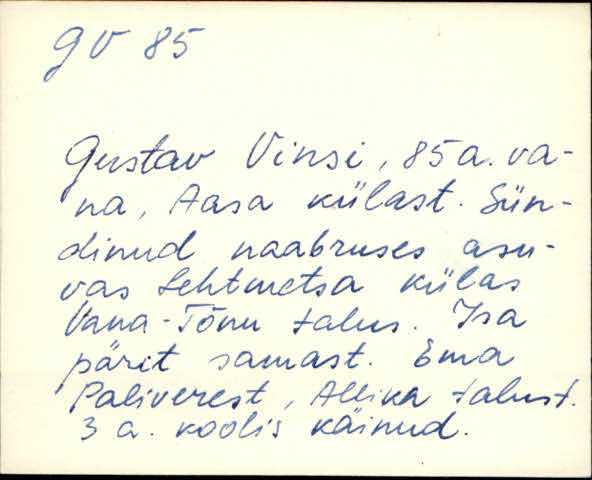 GV 85
Gustav Vinsi, 85 a. va-
na, Aasa külast. Sün-
dinud naabruses asu-
vas Lehtmetsa külas
Vana-Tõnu talus. Isa
pärit samast. Ema
Paliverest, Allika talust.
3 a. koolis käinud.